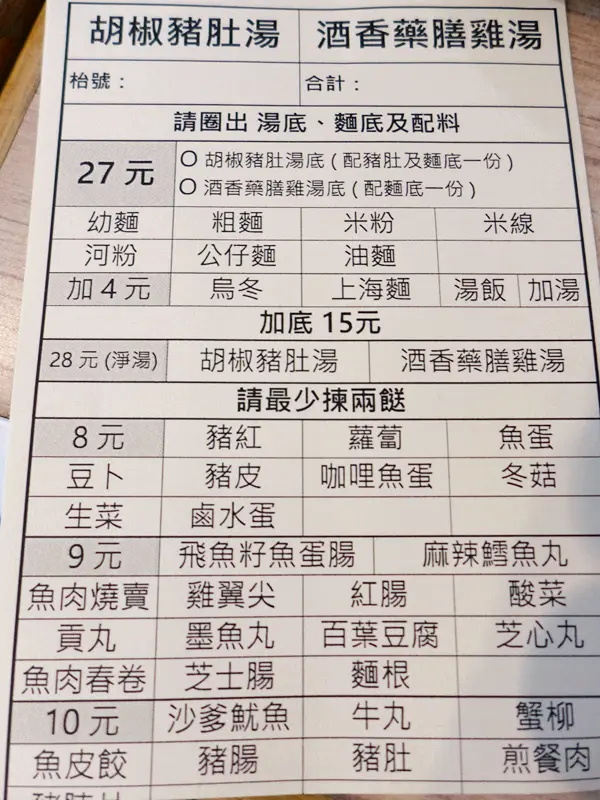 胡椒豬肚湯 酒香藥膳雞湯
枱號： 合計：
請圈出 湯底、麵底及配料
27 元
O 胡椒豬肚湯底 ( 配豬肚及麵底一份 )
O 酒香藥膳雞湯底 ( 配麵底一份 )
幼麵 粗麵 米粉 米線
河粉 公仔麵 油麵
加 4 元 烏冬 上海麵 湯飯 加湯
加底 15元
28 元 (淨湯) 胡椒豬肚湯 酒香藥膳雞湯
請最少揀兩餸
8 元 豬紅 蘿蔔 魚蛋
豆卜 豬皮 咖哩魚蛋 冬菇
生菜 鹵水蛋
9 元 飛魚籽魚蛋腸 麻辣鱈魚丸
魚肉燒賣 雞翼尖 紅腸 酸菜
貢丸 墨魚丸 百葉豆腐 芝心丸
魚肉春卷 芝士腸 麵根
10 元 沙爹魷魚 牛丸 蟹柳
魚皮餃 豬腸 豬肚 煎餐肉